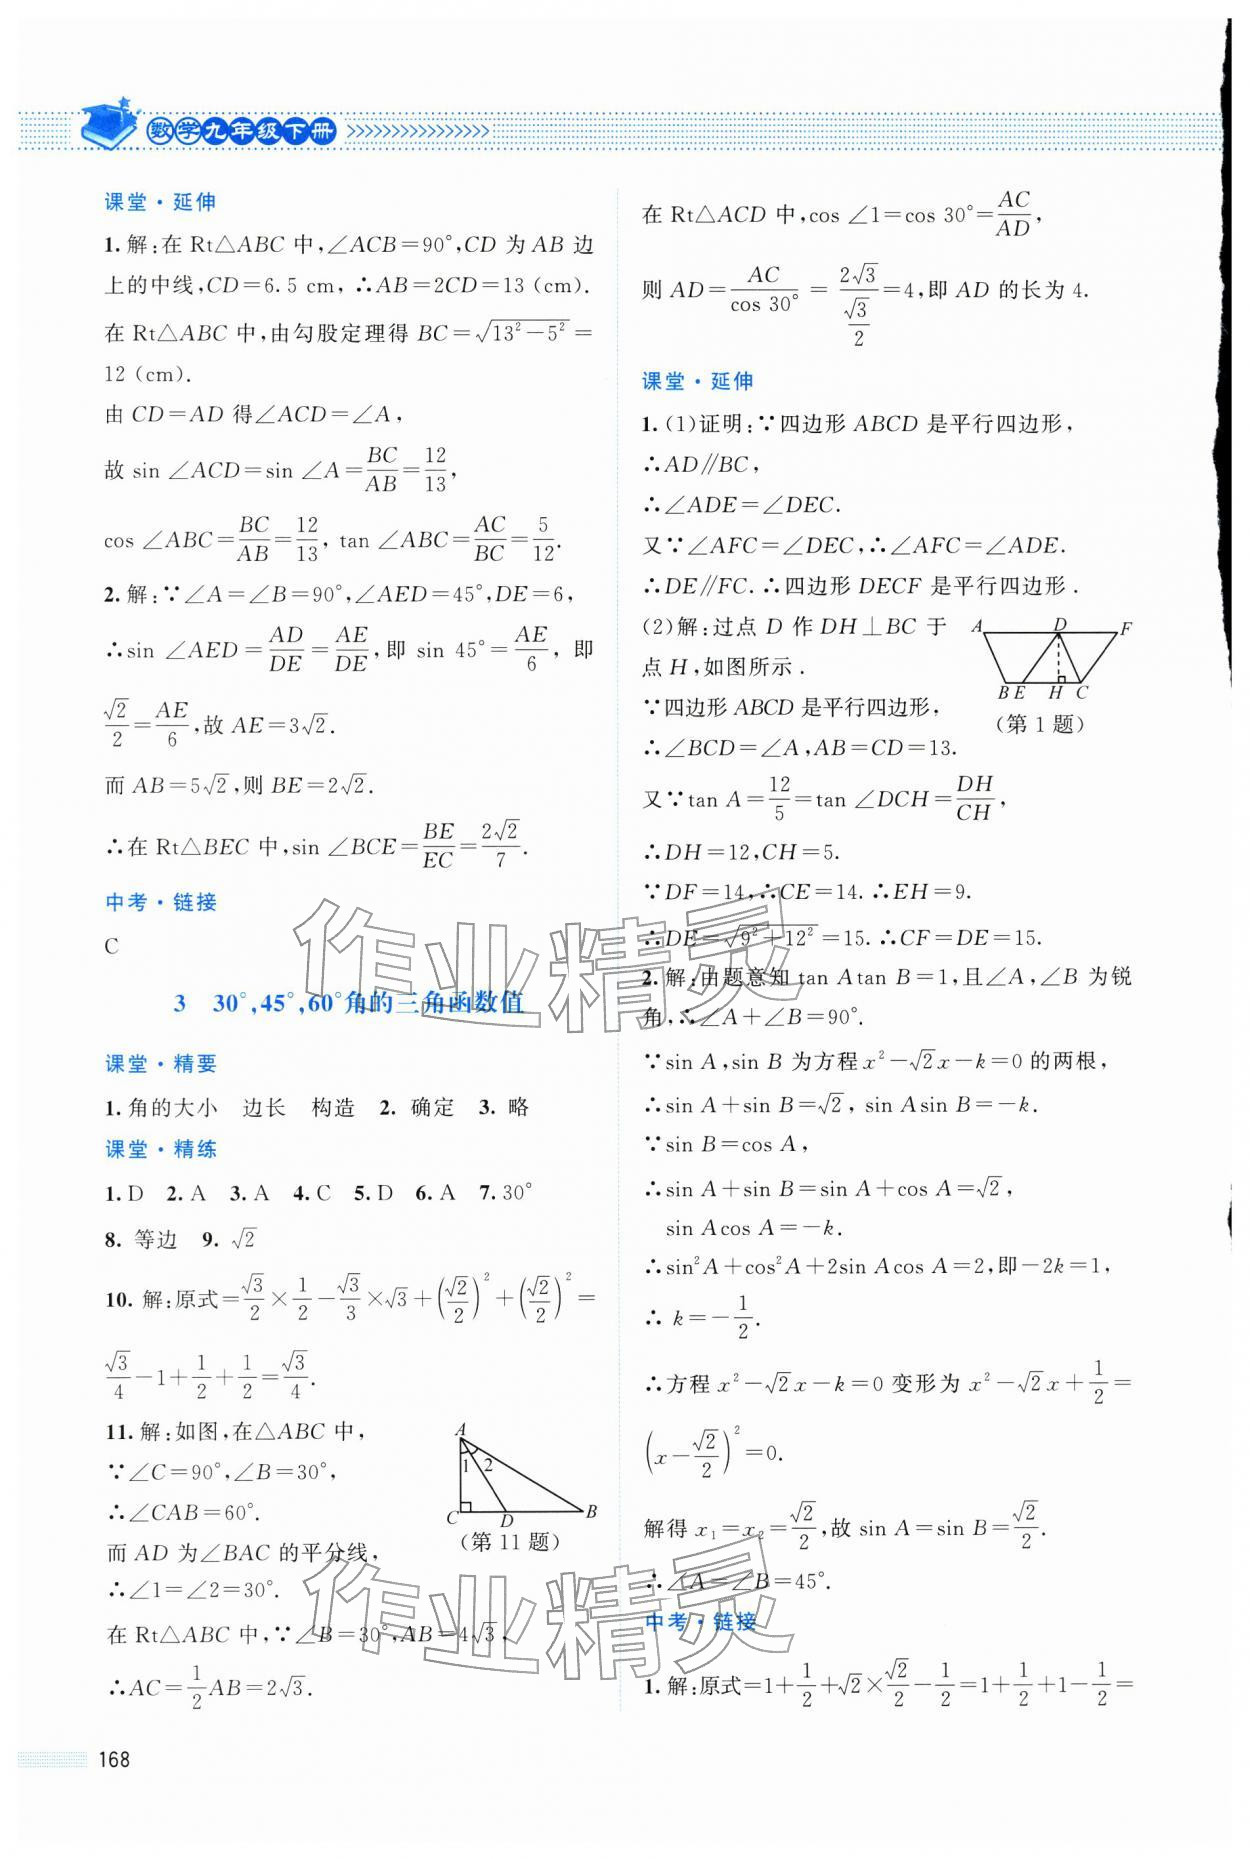 数学九年级下册
课堂·延伸
1. 解:在 Rt△ABC 中,∠ACB=90°,CD 为 AB 边
上的中线,CD=6.5 cm, ∴AB=2CD=13 (cm).
在 Rt△ABC 中,由勾股定理得 BC=√(13²-5²)=
12 (cm).
由 CD=AD 得∠ACD=∠A,
故 sin ∠ACD=sin ∠A=BC/AB=12/13,
cos ∠ABC=BC/AB=12/13, tan ∠ABC=AC/BC=5/12.
2. 解:∵∠A=∠B=90°,∠AED=45°,DE=6,
∴sin ∠AED=AD/DE=AE/DE,即 sin 45°=AE/6, 即
√2/2=AE/6,故 AE=3√2.
而 AB=5√2,则 BE=2√2.
∴在 Rt△BEC 中,sin ∠BCE=BE/EC=2√2/7.
中考·链接
C
3 30°,45°,60°角的三角函数值
课堂·精要
1. 角的大小 边长 构造 2. 确定 3. 略
课堂·精练
1. D 2. A 3. A 4. C 5. D 6. A 7. 30°
8. 等边 9. √2
10. 解:原式=√3/2×1/2-√3/3×√3+(√2/2)²+(√2/2)²=
√3/4-1+1/2+1/2=√3/4.
11. 解:如图,在△ABC 中,
∵∠C=90°,∠B=30°,
∴∠CAB=60°.
而 AD 为∠BAC 的平分线,
∴∠1=∠2=30°.
在 Rt△ABC 中,∵∠B=30°,AB=4√3,
∴AC=1/2AB=2√3.
A
1 2
C D B
(第 11 题)
在 Rt△ACD 中,cos ∠1=cos 30°=AC/AD,
则 AD=AC/cos 30°=2√3/(√3/2)=4,即 AD 的长为 4.
课堂·延伸
1. (1)证明:∵四边形 ABCD 是平行四边形,
∴AD∥BC,
∴∠ADE=∠DEC.
又∵∠AFC=∠DEC,∴∠AFC=∠ADE.
∴DE∥FC. ∴四边形 DECF 是平行四边形.
(2)解:过点 D 作 DH⊥BC 于
点 H,如图所示.
∵四边形 ABCD 是平行四边形,
∴∠BCD=∠A,AB=CD=13.
A D F
B E H C
(第 1 题)
又∵tan A=12/5=tan ∠DCH=DH/CH,
∴DH=12,CH=5.
∵DF=14,∴CE=14. ∴EH=9.
∴DE=√(9²+12²)=15. ∴CF=DE=15.
2. 解:由题意知 tan Atan B=1,且∠A,∠B 为锐
角,∴∠A+∠B=90°.
∵sin A,sin B 为方程 x²-√2x-k=0 的两根,
∴sin A+sin B=√2, sin Asin B=-k.
∵sin B=cos A,
∴sin A+sin B=sin A+cos A=√2,
sin Acos A=-k.
∴sin²A+cos²A+2sin Acos A=2,即-2k=1,
∴ k=-1/2.
∴方程 x²-√2x-k=0 变形为 x²-√2x+1/2=
(x-√2/2)²=0.
解得 x₁=x₂=√2/2,故 sin A=sin B=√2/2.
∴∠A=∠B=45°.
中考·链接
1. 解:原式=1+1/2+√2×√2/2-1/2=1+1/2+1-1/2=
168
作业精灵
作业精灵